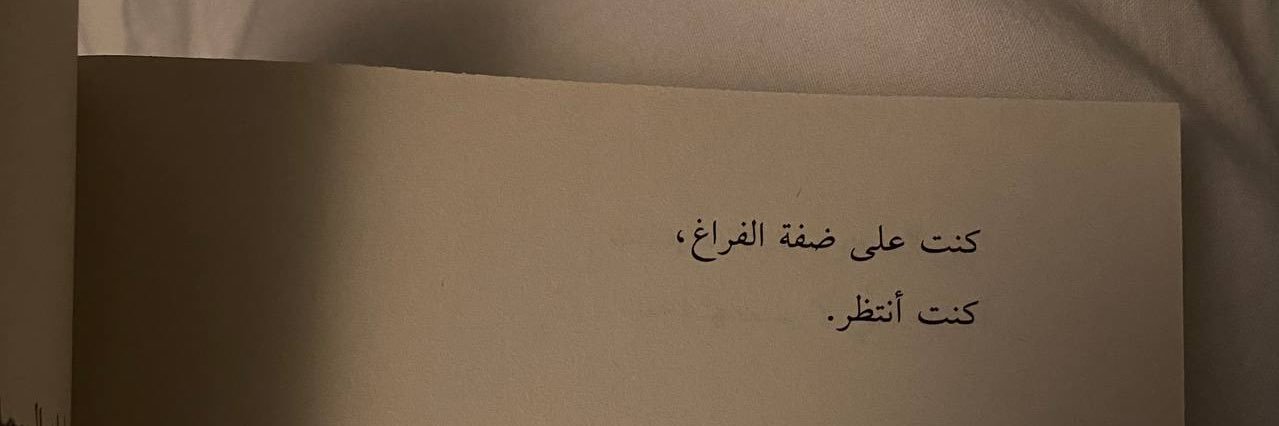 كنت على ضفة الفراغ،
كنت أنتظر.